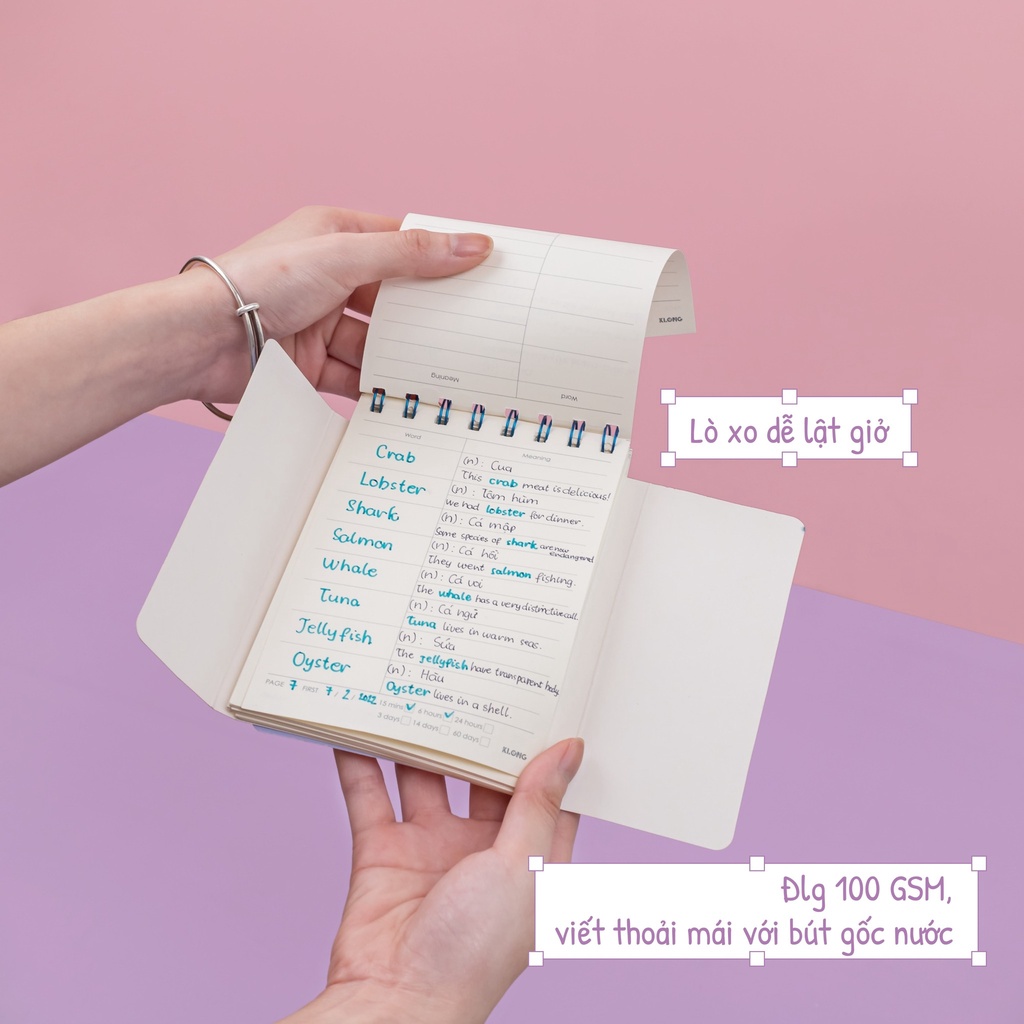 KLONG
Meaning
Word
Lò xo dễ lật giở
Word
Meaning
Crab
(n) : Cua
This crab meat is delicious!
Lobster
(n) : Tôm hùm
We had lobster for dinner.
Shark
(n) : Cá mập
Some species of shark are now endangered
Salmon
(n) : Cá hồi
They went salmon fishing.
Whale
(n) : Cá voi
The whale has a very distinctive call
Tuna
(n) : Cá ngừ
Tuna lives in warm seas.
Jellyfish
(n) : Sứa
The jellyfish have transparent body.
Oyster
(n) : Hàu
Oyster lives in a shell.
PAGE 7 FIRST 7 / 2 / 2022
15 mins ✓ 6 hours ✓ 24 hours
3 days 14 days 60 days
KLONG
Đlg 100 GSM,
viết thoải mái với bút gốc nước